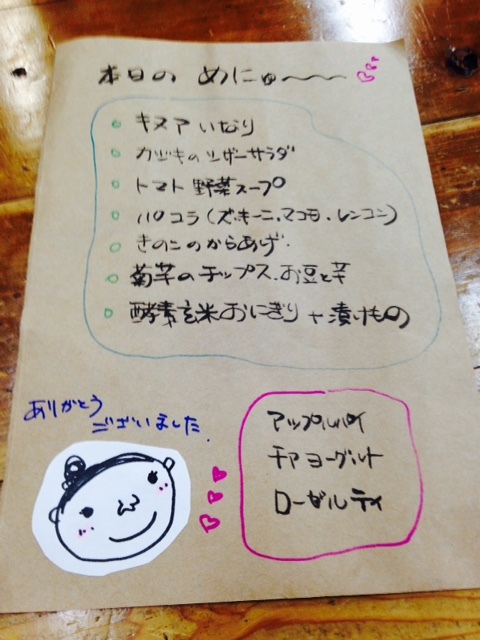 本日の めにゅ〜〜
キヌア いなり
カブキの シーザーサラダ
トマト 野菜スープ
パコラ (ズッキーニ、マコモ、レンコン)
きのこのからあげ
菊芋のチップス、お豆と芋
酵素玄米おにぎり + 漬けもの
ありがとう
ございました.
アップルパイ
チア ヨーグルト
ローゼルティ